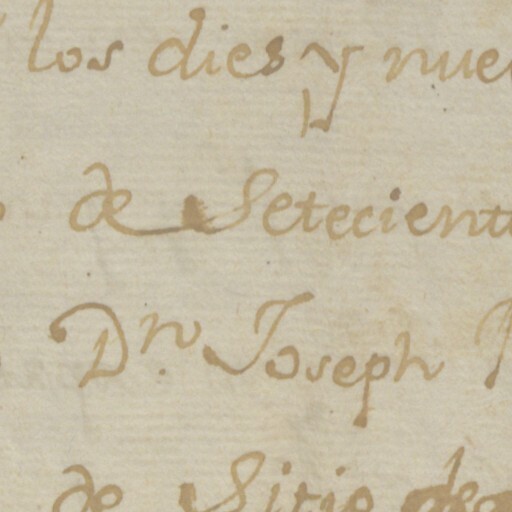 los dies y nue
de Setecient
Dn. Joseph
de Sitio